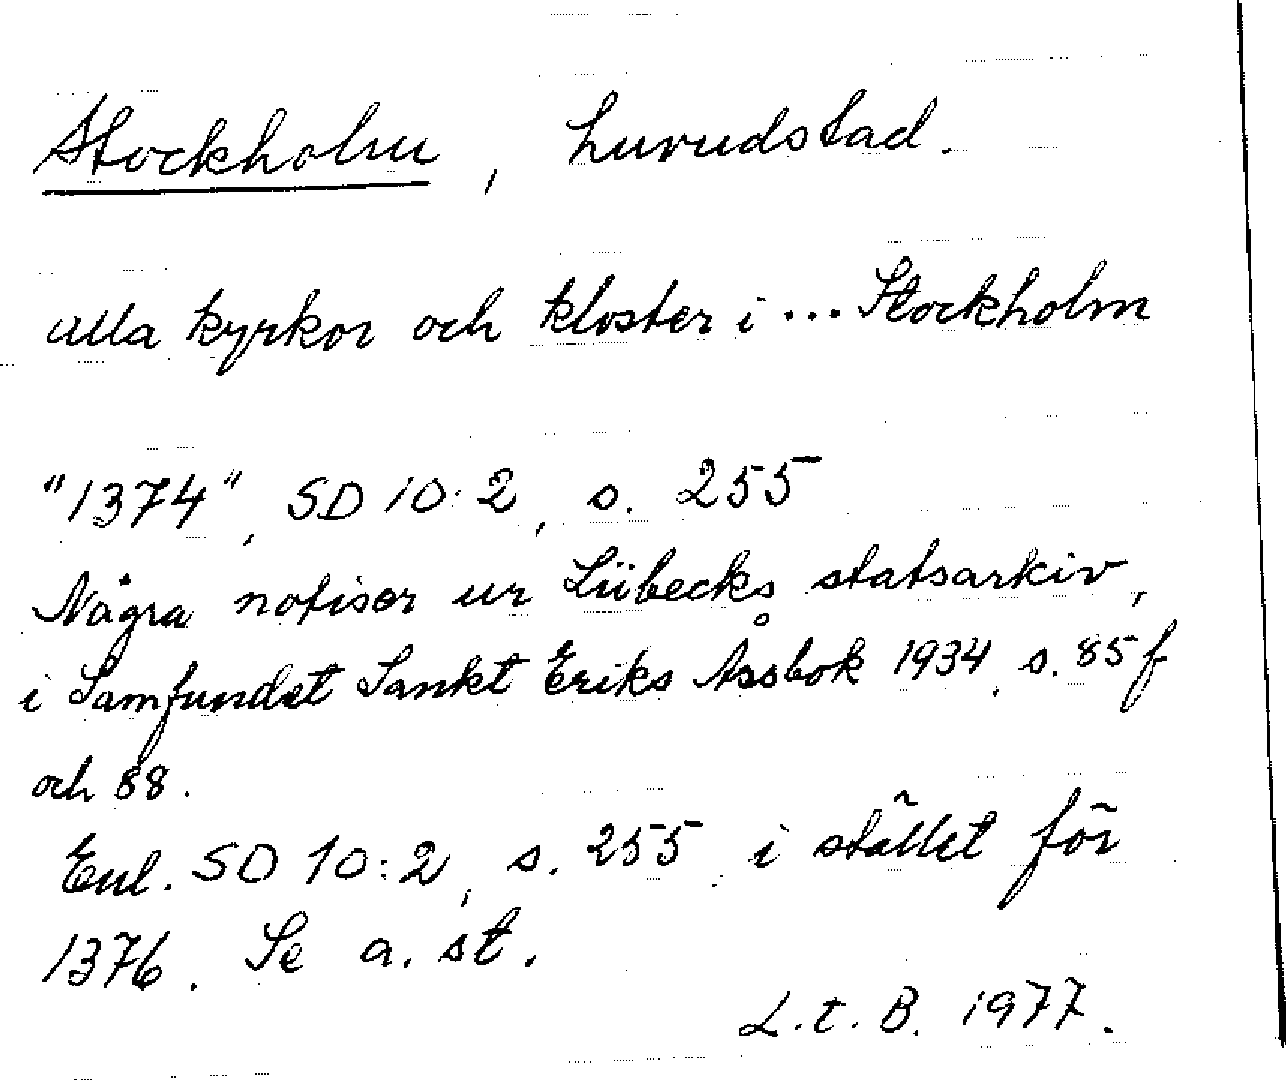 Stockholm, huvudstad.
alla kyrkor och kloster i ... Stockholm
"1374", SD 10:2, s. 255
Några notiser ur Lübecks statsarkiv,
i Samfundet Sankt Eriks Årsbok 1934, s. 85 f
och 88.
Enl. SD 10:2, s. 255 i stället för
1376. Se a. st.
L.t.B. 1977.